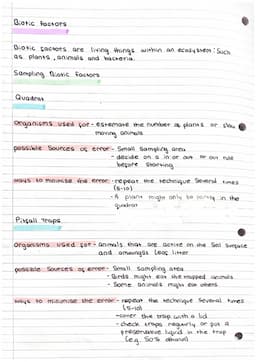 Biotic Factors
Biotic factors are living things within an ecosystem: Such
as plants, animals and bacteria.
Sampling Biotic Factors
Quadrat
organisms used for - estemate the number of plants or slow
moving animals
possible Sources of error - Small sampling area
- decide on a in or out or out rule
before starting
ways to minimise the error - repeat the technique Several times
(5-10)
- A plant might only be partly in the
quadrat
Pitfall Traps
organisms used for - animals that are active on the Soil Surface
and amongst leaf litter
possible sources of error - Small sampling area
- Birds might eat the trapped animals
- Some animals might eat others
ways to minimise the error - repeat the technique Several times
(5-10)
- cover the trap with a lid
- check traps regularly or put a
preservative liquid in the trap
(e.g. 50% ethanol)